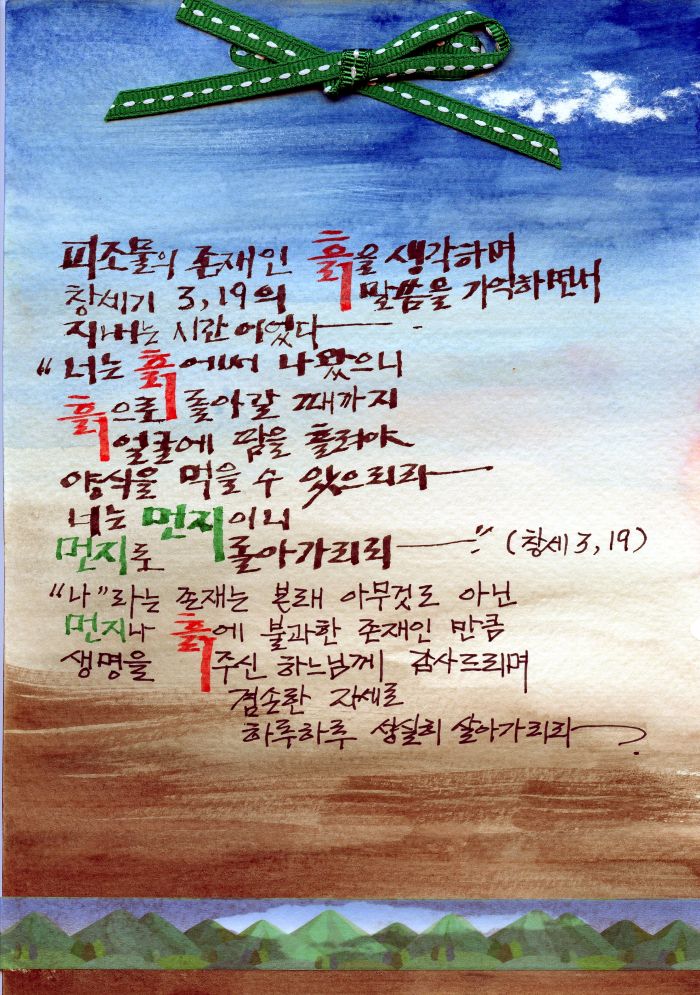 피조물의 존재인 흙을 생각하며
창세기 3,19의 말씀을 기억하면서
지내는 시간이었다 .
“너는 흙에서 나왔으니
흙으로 돌아갈 때까지
얼굴에 땀을 흘려야
양식을 먹을 수 있으리라
너는 먼지이니
먼지로 돌아가리라 .” (창세 3,19)
“나”라는 존재는 본래 아무것도 아닌
먼지나 흙에 불과한 존재인 만큼
생명을 주신 하느님께 감사드리며
겸손한 자세로
하루하루 성실히 살아가리라 .